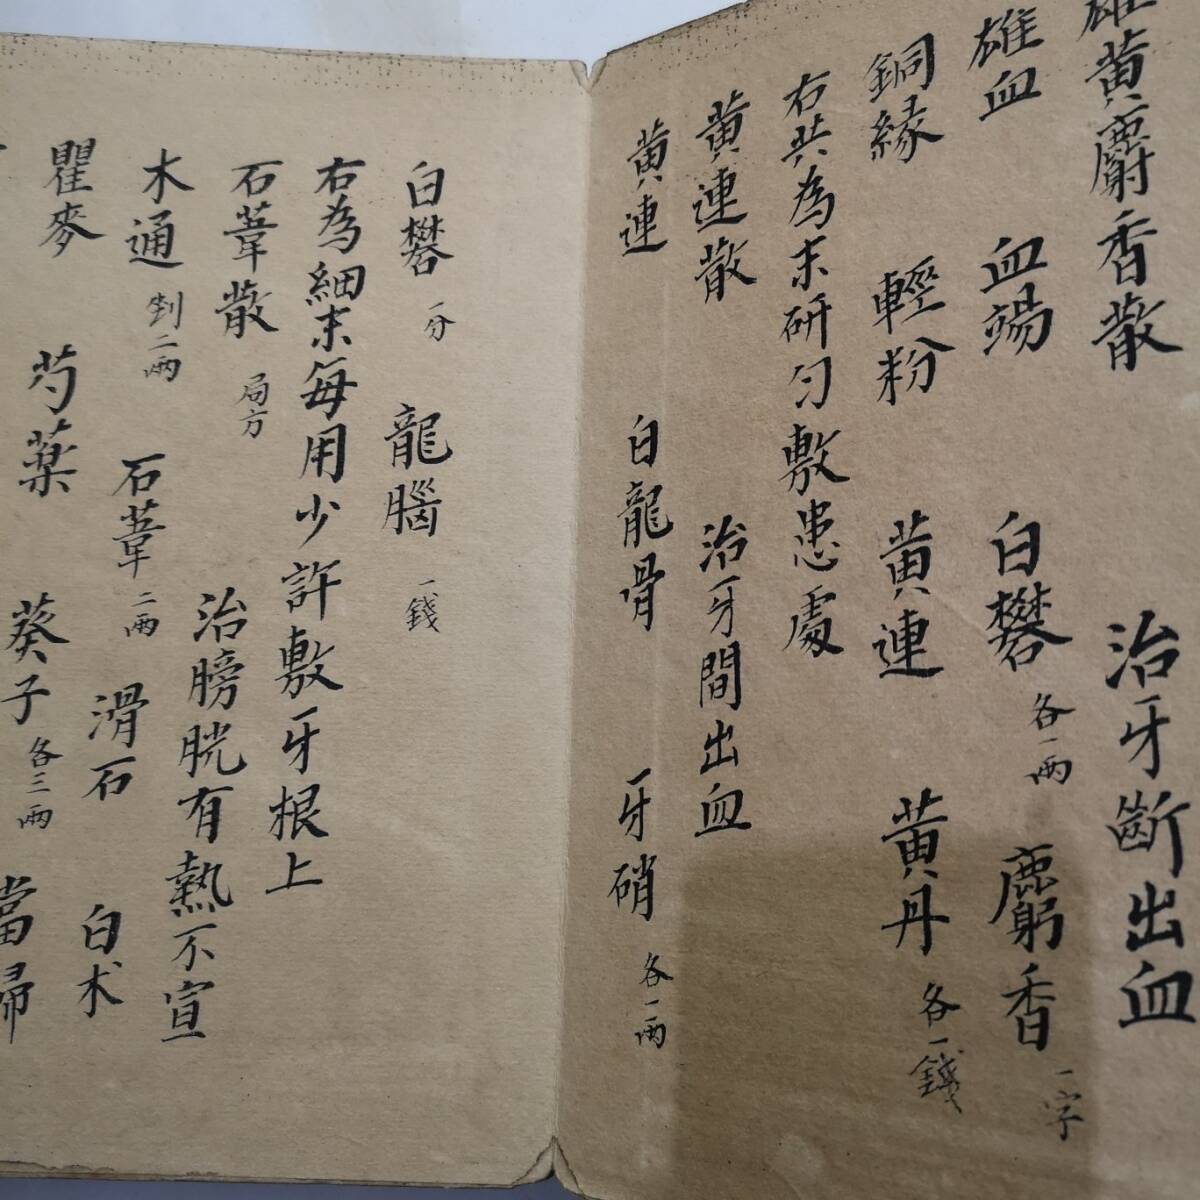 雄黄麝香散 治牙斷出血
雄血 血竭 白礬 各一兩 麝香 一字
銅緑 輕粉 黄連 黄丹 各一錢
右共為末研匀敷患處
黄連散 治牙間出血
黄連 白龍骨 牙硝 各一兩
白礬 一分 龍腦 一錢
右為細末每用少許敷牙根上
石葦散 局方 治膀胱有熱不宣
木通 剉二兩 石葦 二兩 滑石 白术
瞿麥 芍藥 葵子 各三兩 當歸